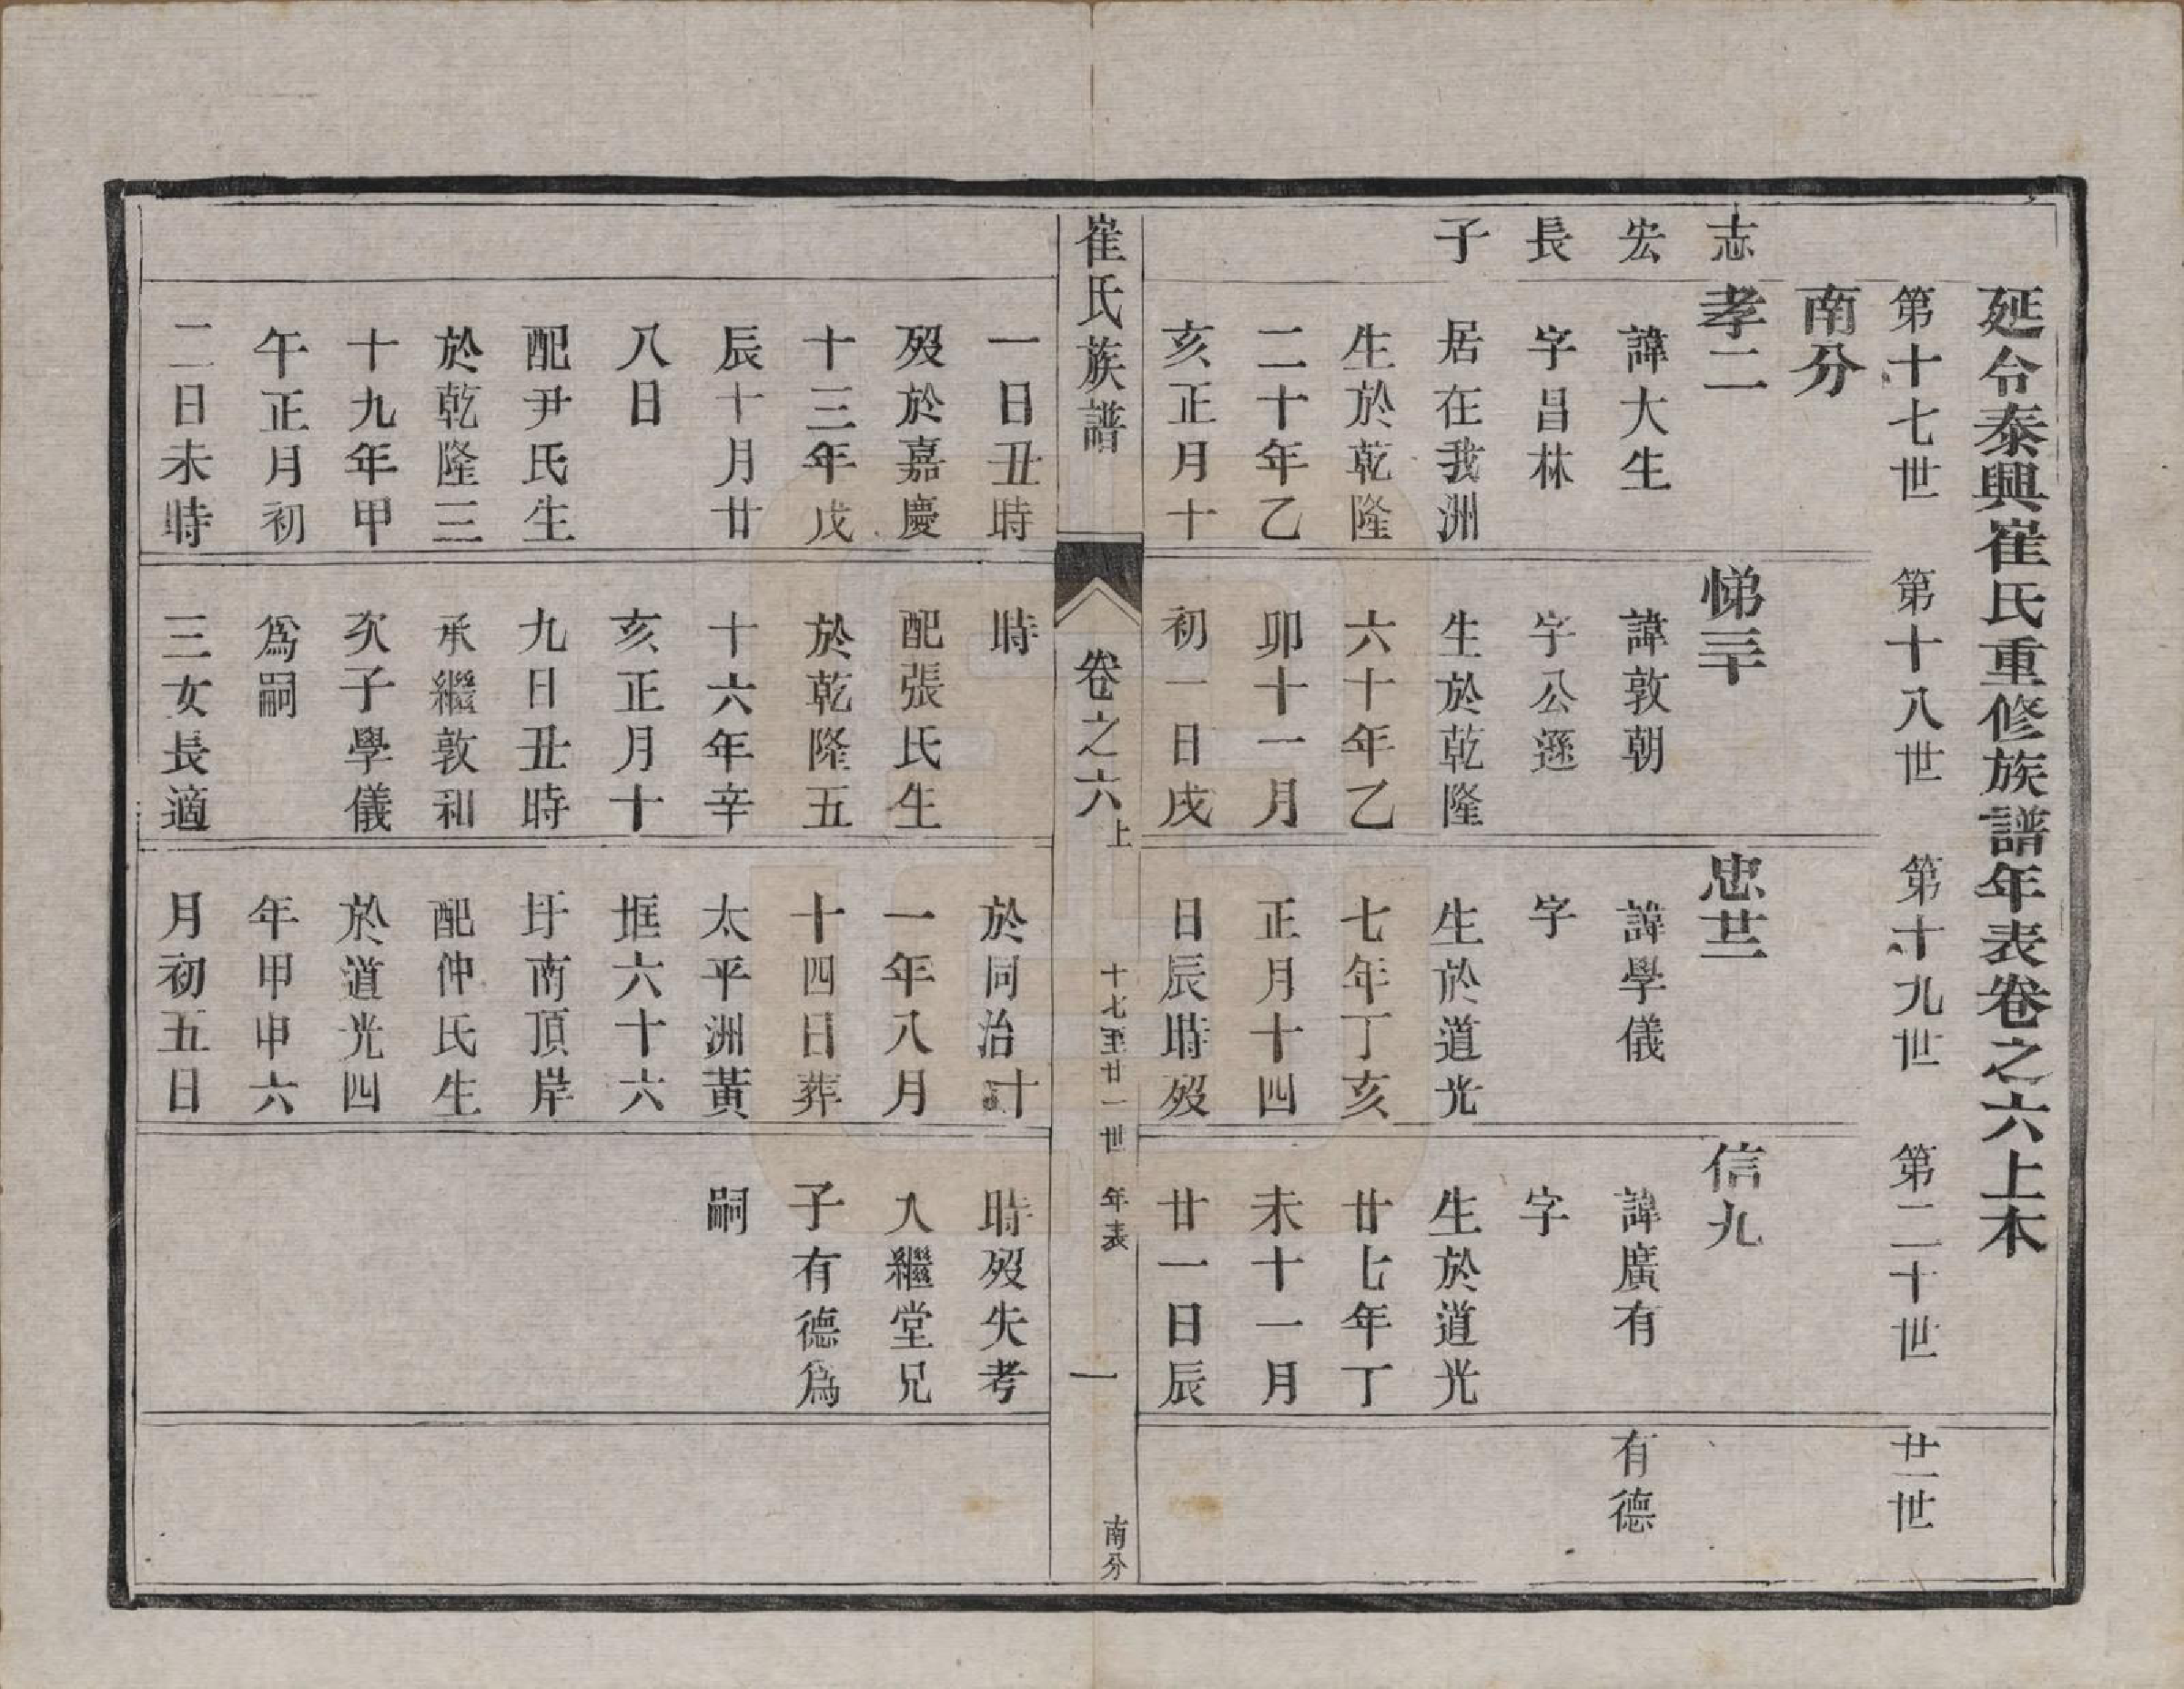 延令泰興崔氏重修族譜年表卷之六上木
第十七世
第十八世
第十九世
第二十世
廿一世
南分
志
宏
長
子
孝二
諱大生
字昌林
居在我洲
生於乾隆
二十年乙
亥正月十
悌三十
諱敦朝
字公遜
生於乾隆
六十年乙
卯十一月
初一日戌
忠廿二
諱學儀
字
生於道光
七年丁亥
正月十四
日辰時歿
信九
諱廣有
字
生於道光
廿七年丁
未十一月
廿一日辰
有德
崔氏族譜
卷之六上
十七至廿一世
年表
一
南分
一日丑時
歿於嘉慶
十三年戊
辰十月廿
八日
配尹氏生
於乾隆三
十九年甲
午正月初
二日未時
時
配張氏生
於乾隆五
十六年辛
亥正月十
九日丑時
承繼敦和
次子學儀
為嗣
三女長適
於同治十
一年八月
十四日葬
太平洲黃
框六十六
圩南頂岸
配仲氏生
於道光四
年甲申六
月初五日
時歿失考
入繼堂兄
子有德為
嗣